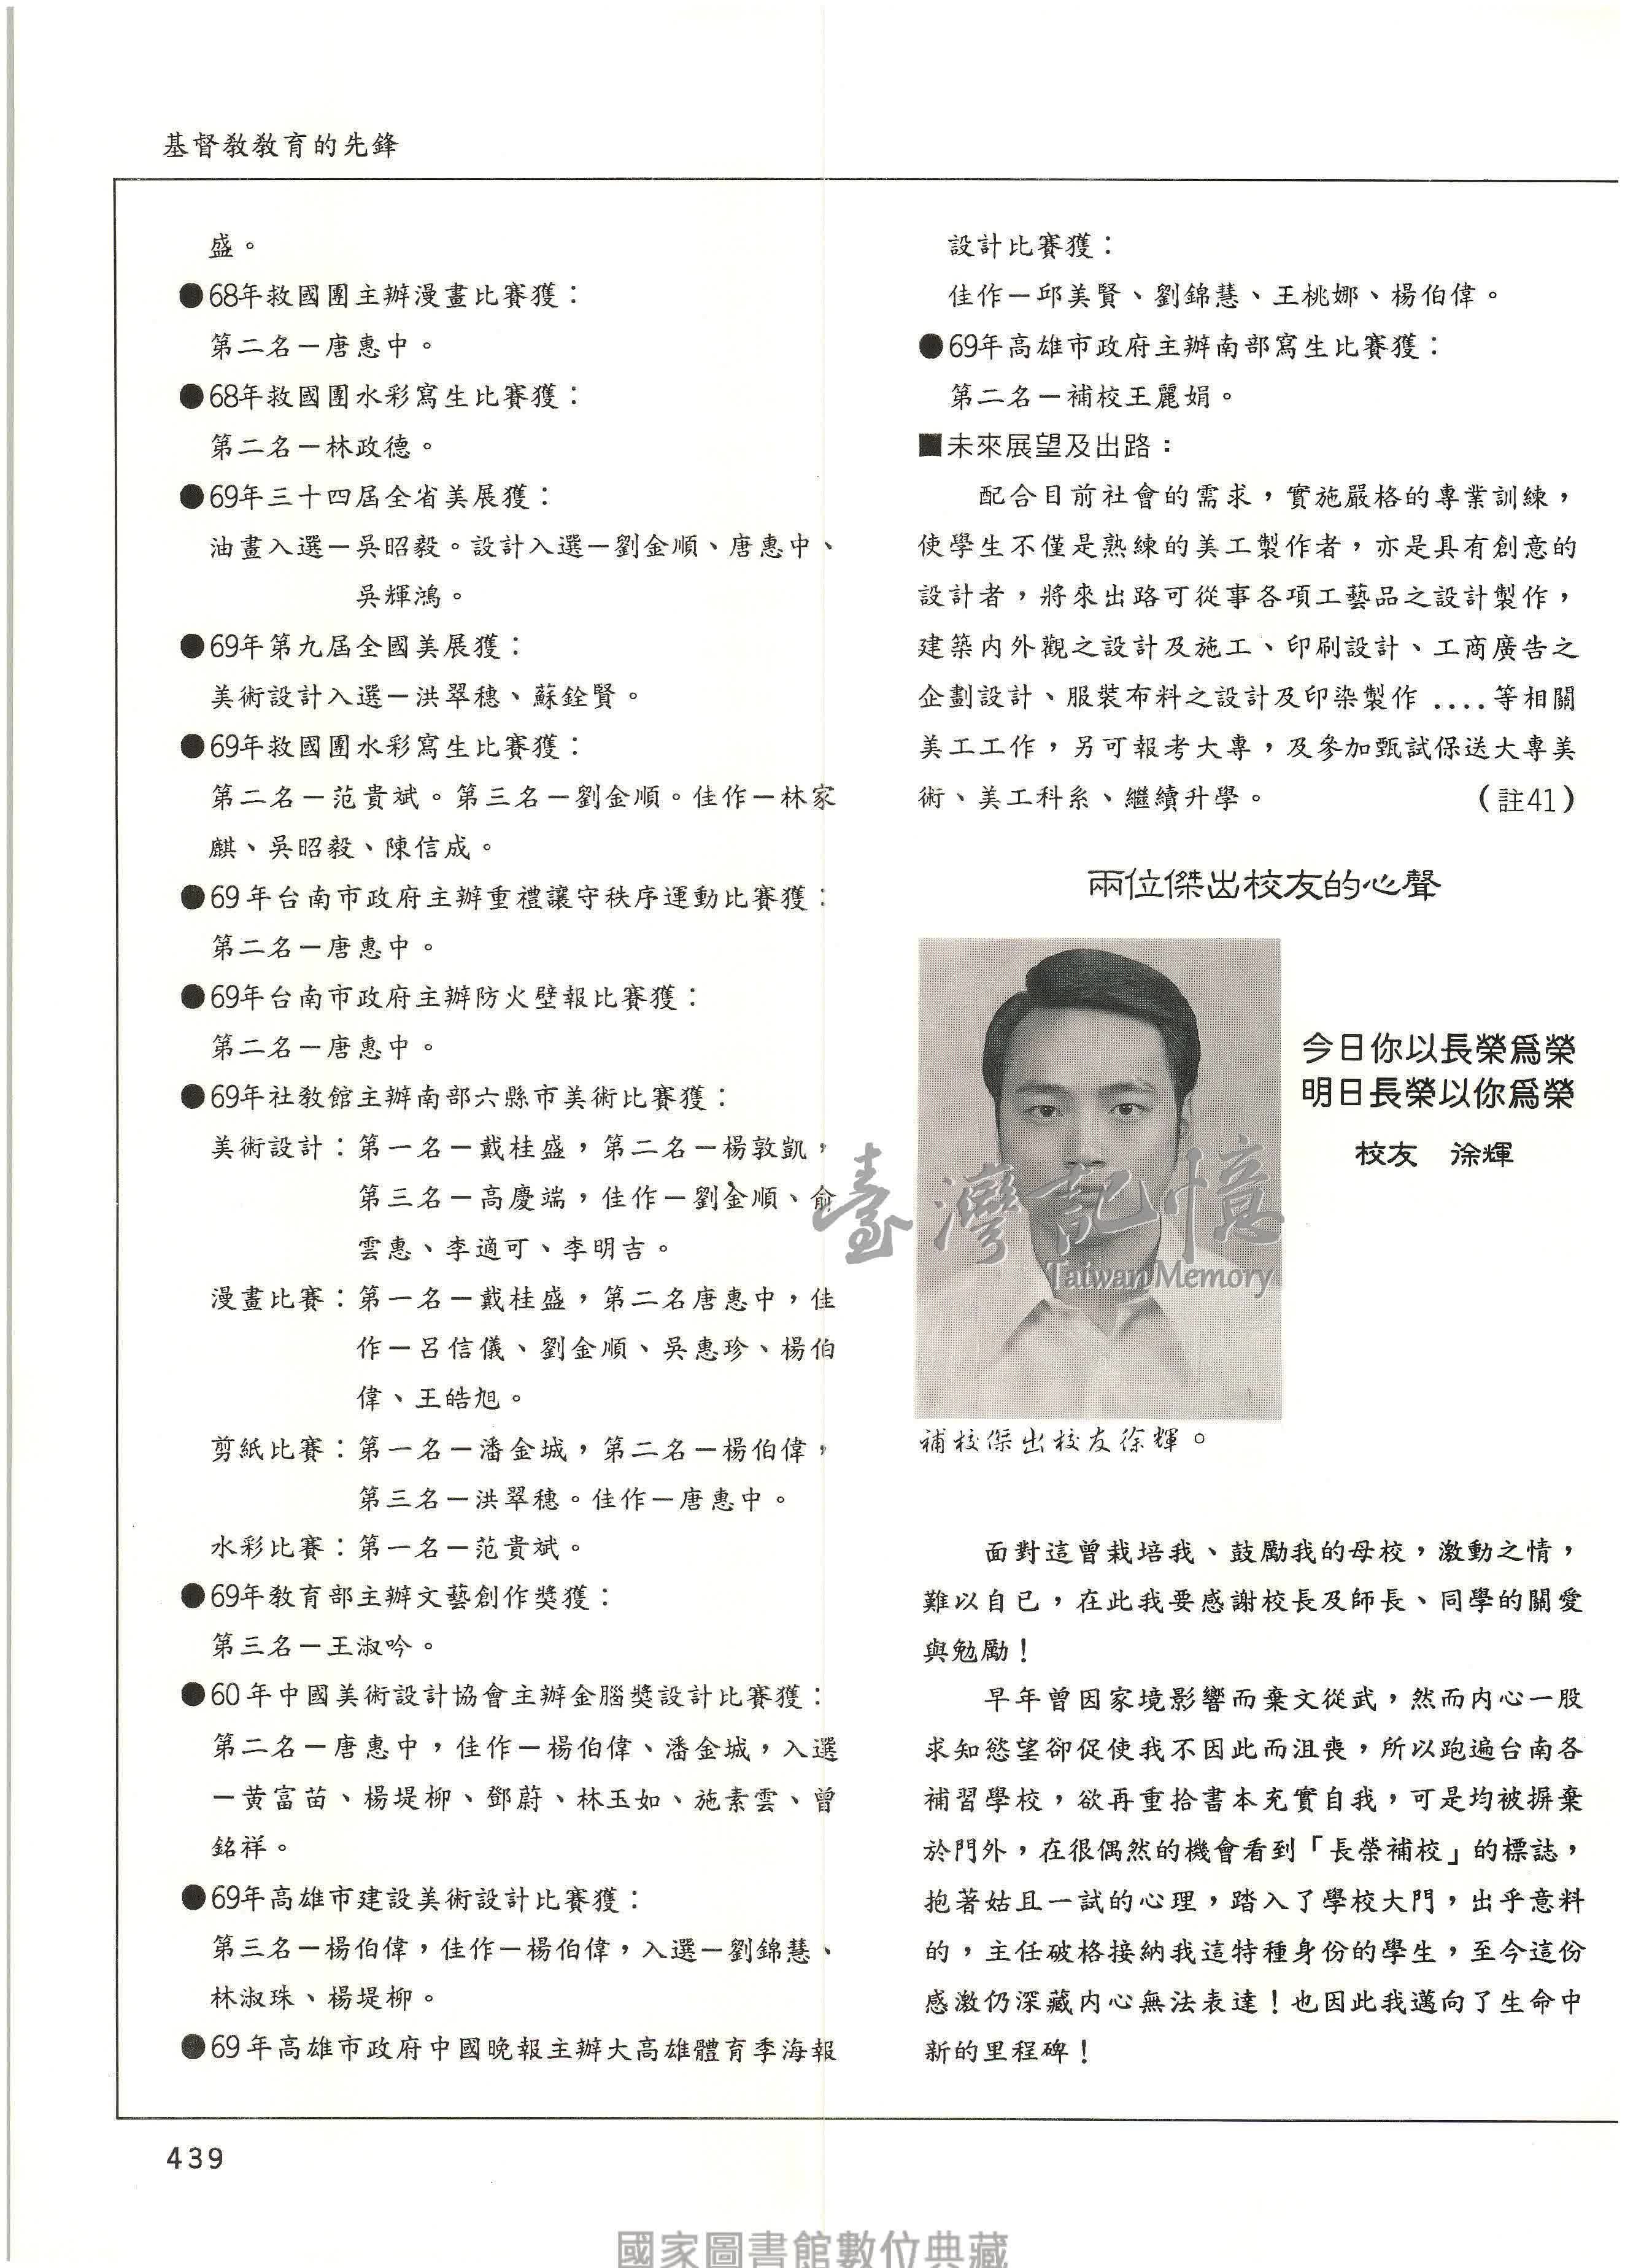 基督教教育的先鋒
盛。
●68年救國團主辦漫畫比賽獲：
第二名－唐惠中。
●68年救國團水彩寫生比賽獲：
第二名－林政德。
●69年三十四屆全省美展獲：
油畫入選－吳昭毅。設計入選－劉金順、唐惠中、
吳輝鴻。
●69年第九屆全國美展獲：
美術設計入選－洪翠穗、蘇銓賢。
●69年救國團水彩寫生比賽獲：
第二名－范貴斌。第三名－劉金順。佳作－林家
麒、吳昭毅、陳信成。
●69年台南市政府主辦重禮讓守秩序運動比賽獲：
第二名－唐惠中。
●69年台南市政府主辦防火壁報比賽獲：
第二名－唐惠中。
●69年社教館主辦南部六縣市美術比賽獲：
美術設計：第一名－戴桂盛，第二名－楊敦凱，
第三名－高慶端，佳作－劉金順、俞
雲惠、李適可、李明吉。
漫畫比賽：第一名－戴桂盛，第二名唐惠中，佳
作－呂信儀、劉金順、吳惠珍、楊伯
偉、王皓旭。
剪紙比賽：第一名－潘金城，第二名－楊伯偉，
第三名－洪翠穗。佳作－唐惠中。
水彩比賽：第一名－范貴斌。
●69年教育部主辦文藝創作獎獲：
第三名－王淑吟。
●60年中國美術設計協會主辦金腦獎設計比賽獲：
第二名－唐惠中，佳作－楊伯偉、潘金城，入選
－黃富苗、楊堤柳、鄧蔚、林玉如、施素雲、曾
銘祥。
●69年高雄市建設美術設計比賽獲：
第三名－楊伯偉，佳作－楊伯偉，入選－劉錦慧、
林淑珠、楊堤柳。
●69年高雄市政府中國晚報主辦大高雄體育季海報
設計比賽獲：
佳作－邱美賢、劉錦慧、王桃娜、楊伯偉。
●69年高雄市政府主辦南部寫生比賽獲：
第二名－補校王麗娟。
■未來展望及出路：
配合目前社會的需求，實施嚴格的專業訓練，
使學生不僅是熟練的美工製作者，亦是具有創意的
設計者，將來出路可從事各項工藝品之設計製作，
建築內外觀之設計及施工、印刷設計、工商廣告之
企劃設計、服裝布料之設計及印染製作....等相關
美工工作，另可報考大專，及參加甄試保送大專美
術、美工科系、繼續升學。（註41）
兩位傑出校友的心聲
今日你以長榮爲榮
明日長榮以你爲榮
校友　涂輝
臺灣記憶
Taiwan Memory
補校傑出校友徐輝。
面對這曾栽培我、鼓勵我的母校，激動之情，
難以自已，在此我要感謝校長及師長、同學的關愛
與勉勵！
早年曾因家境影響而棄文從武，然而內心一股
求知慾望卻促使我不因此而沮喪，所以跑遍台南各
補習學校，欲再重拾書本充實自我，可是均被摒棄
於門外，在很偶然的機會看到「長榮補校」的標誌，
抱著姑且一試的心理，踏入了學校大門，出乎意料
的，主任破格接納我這特種身份的學生，至今這份
感激仍深藏內心無法表達！也因此我邁向了生命中
新的里程碑！
439
國家圖書館數位典藏